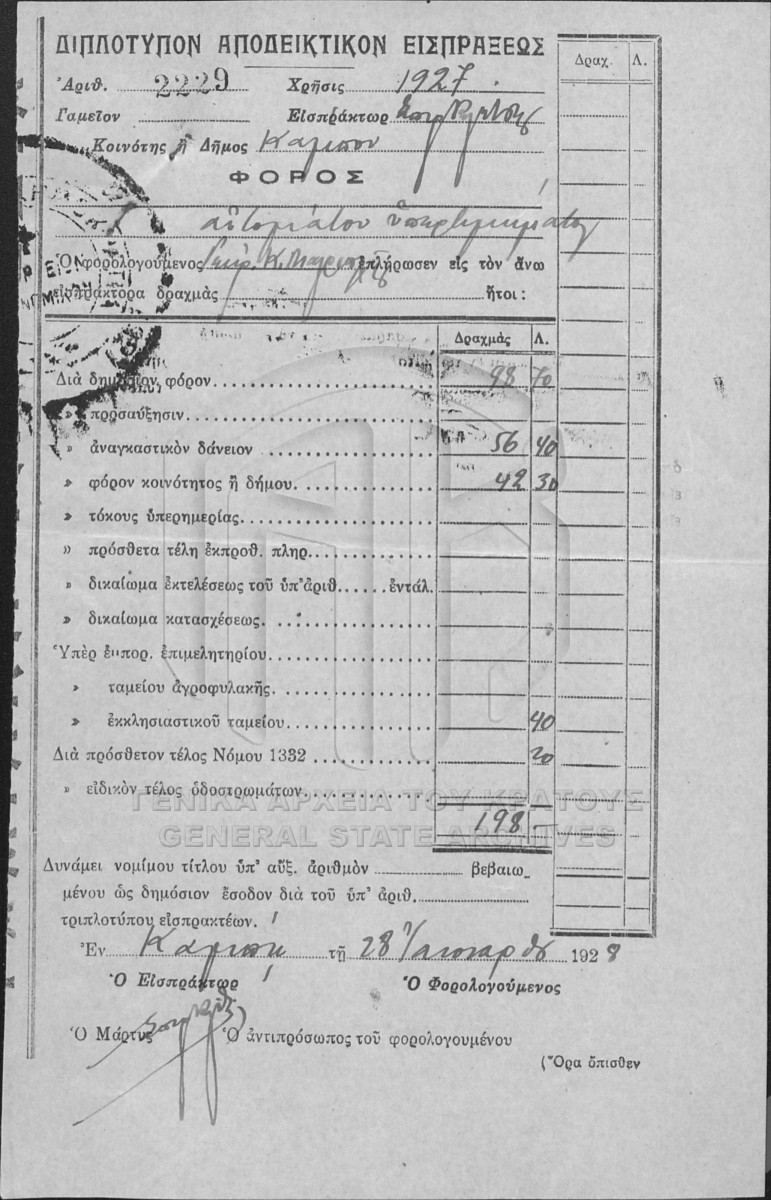 ΔΙΠΛΟΤΥΠΟΝ ΑΠΟΔΕΙΚΤΙΚΟΝ ΕΙΣΠΡΑΞΕΩΣ
Δραχ. Λ.
Ἀριθ. 2229 Χρῆσις 1927
Γαμεῖον Εἰσπράκτωρ
Κοινότης ἢ Δῆμος
ΦΟΡΟΣ
αὐτομάτου ὑπερτιμήματος
Ὁ φορολογούμενος ἐπλήρωσεν εἰς τὸν ἄνω
εἰσπράκτορα δραχμὰς ἤτοι:
Δραχμὰς Λ.
Διὰ δημόσιον φόρον 98 70
» προσαύξησιν
» ἀναγκαστικὸν δάνειον 56 40
» φόρον κοινότητος ἢ δήμου 42 30
» τόκους ὑπερημερίας
» πρόσθετα τέλη ἐκπροθ. πληρ.
» δικαίωμα ἐκτελέσεως τοῦ ὑπ' ἀριθ. ἐντάλ.
» δικαίωμα κατασχέσεως
Ὑπὲρ ἐμπορ. ἐπιμελητηρίου
» ταμείου ἀγροφυλακῆς
» ἐκκλησιαστικοῦ ταμείου 40
Διὰ πρόσθετον τέλος Νόμου 1332 20
» εἰδικὸν τέλος ὁδοστρωμάτων
ΓΕΝΙΚΑ ΑΡΧΕΙΑ ΤΟΥ ΚΡΑΤΟΥΣ
198 -
GENERAL STATE ARCHIVES
Δυνάμει νομίμου τίτλου ὑπ' αὔξ. ἀριθμὸν βεβαιω
μένου ὡς δημόσιον ἔσοδον διὰ τοῦ ὑπ' ἀριθ.
τριπλοτύπου εἰσπρακτέων.
Ἐν τῇ 28 Ἰανουαρίου 1928
Ὁ Εἰσπράκτωρ Ὁ Φορολογούμενος
Ὁ Μάρτυς Ὁ ἀντιπρόσωπος τοῦ φορολογουμένου
(Ὅρα ὄπισθεν